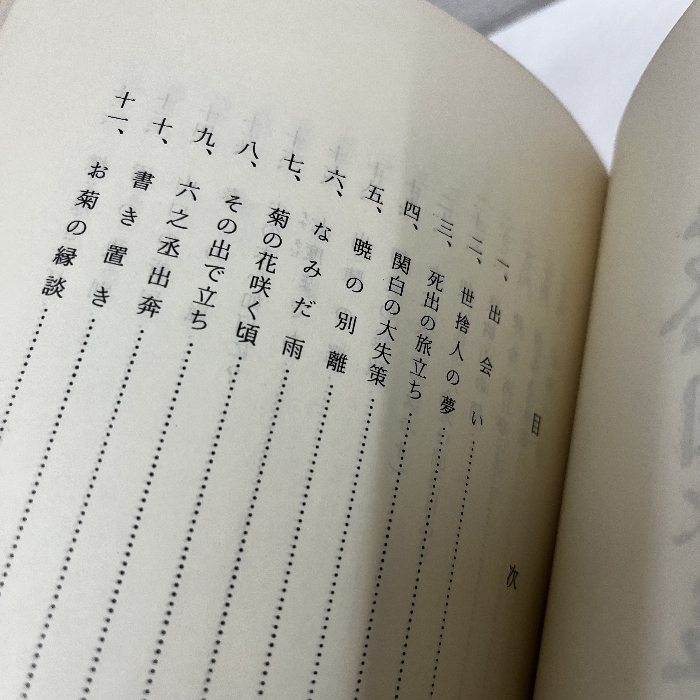 目次
一、出会い
二、世捨人の夢
三、死出の旅立ち
四、関白の大失策
五、暁の別離
六、なみだ雨
七、菊の花咲く頃
八、その出で立ち
九、六之丞出奔
十、書き置き
十一、お菊の縁談